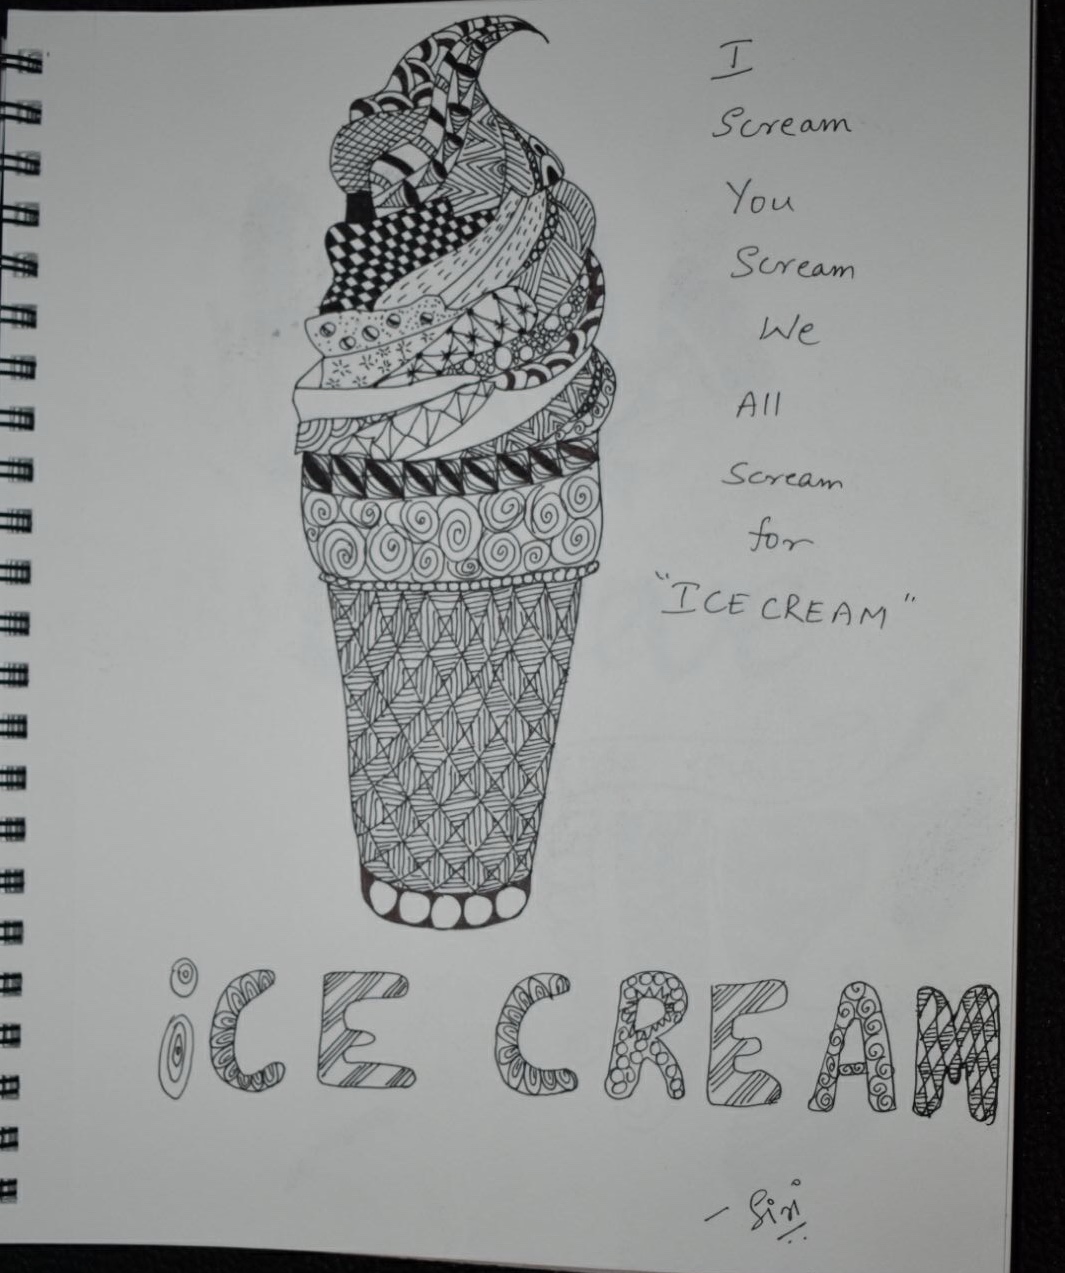 I
Scream
You
Scream
We
All
Scream
for
"ICE CREAM"
iCE CREAM
- Siri